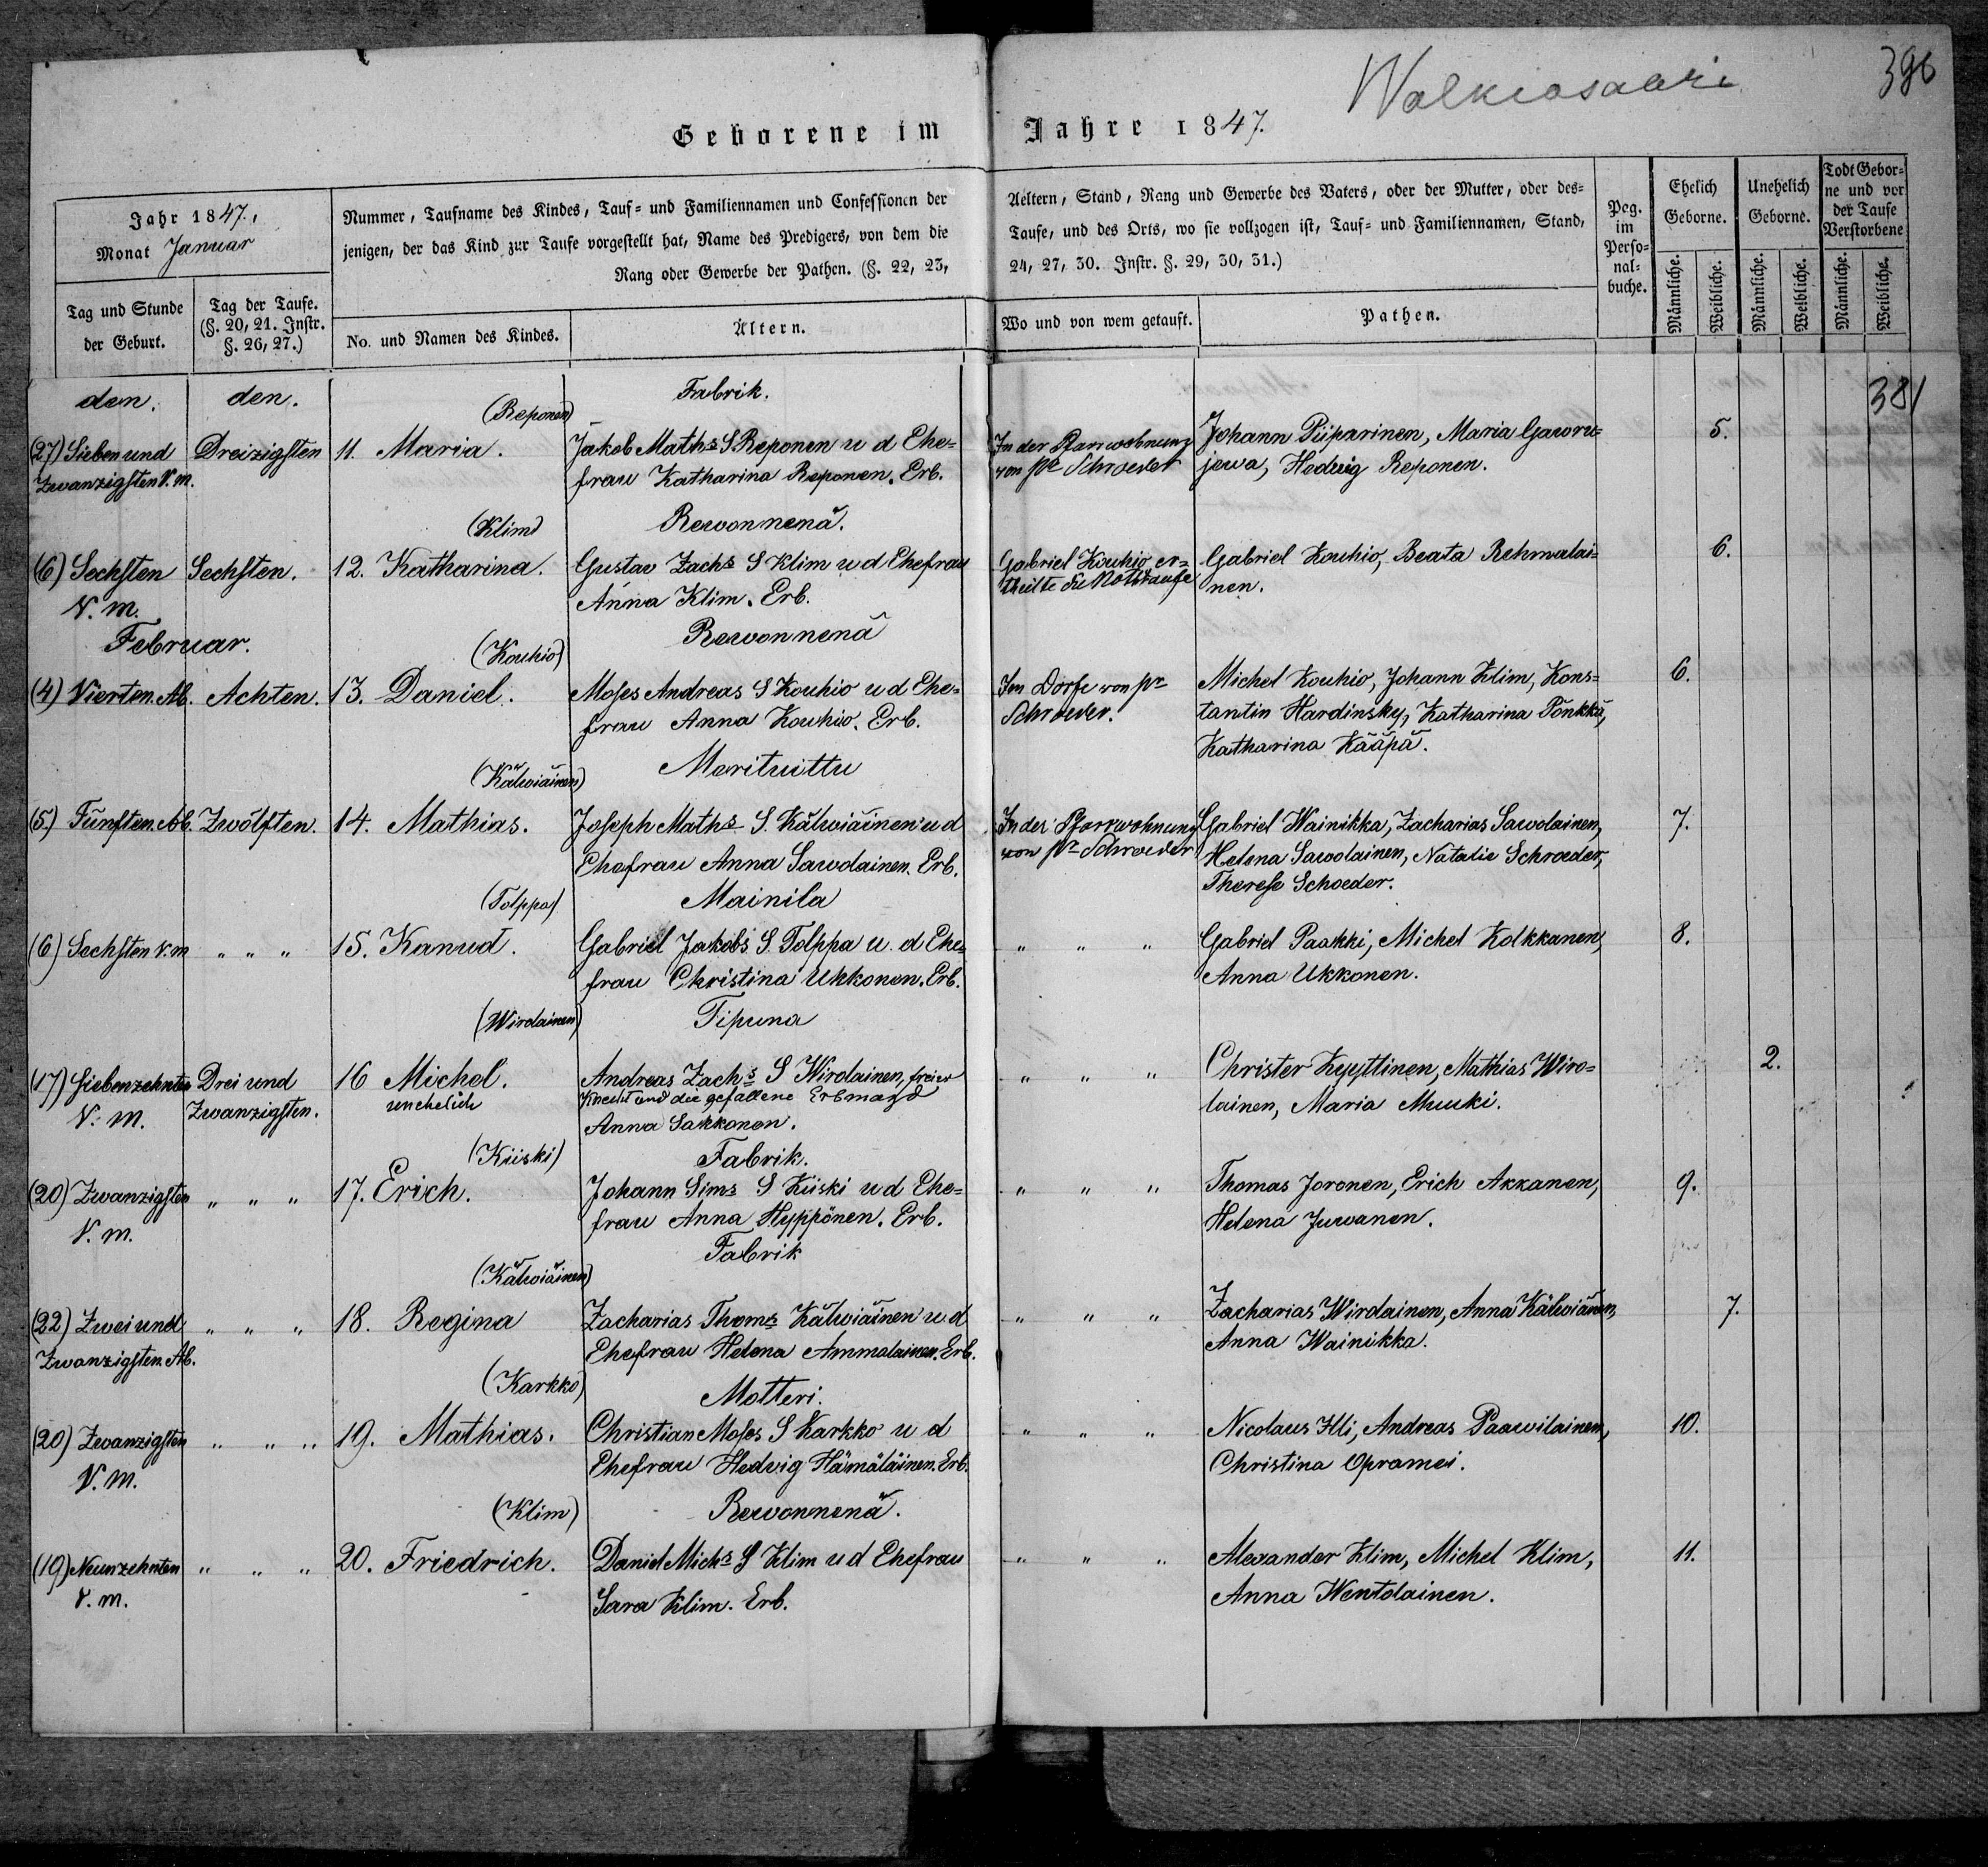 Walkiasaari
396
Geborene im Jahre 1847.
Jahr 1847,
Monat Januar
Nummer, Taufname des Kindes, Tauf- und Familiennamen und Confessionen der
jenigen, der das Kind zur Taufe vorgestellt hat, Name des Predigers, von dem die
Rang oder Gewerbe der Pathen. (§. 22, 23,
Aeltern, Stand, Rang und Gewerbe des Vaters, oder der Mutter, oder des-
Taufe, und des Orts, wo sie vollzogen ist, Tauf- und Familiennamen, Stand,
24, 27, 30. Instr. §. 29, 30, 31.)
Pag.
im
Perso-
nal-
buche.
Ehelich
Geborne.
Unehelich
Geborne.
Todt Gebor-
ne und vor
der Taufe
Verstorbene
Tag und Stunde
der Geburt.
Tag der Taufe.
(§. 20, 21. Instr.
§. 26, 27.)
No. und Namen des Kindes.
Ältern.
Wo und von wem getauft.
Pathen.
Männliche.
Weibliche.
Männliche.
Weibliche.
Männliche.
Weibliche.
381
den.
den.
Fabrik.
(Reponen)
(27) Sieben und
Zwanzigsten V. m.
Dreizigsten
11. Maria.
Jakob Maths S Reponen u d Ehe-
frau Katharina Reponen. Erb.
In der Pfarrwohnung
von pr Schroeder
Johann Piiparinen, Maria Gawru-
jewa, Hedwig Reponen.
5.
(Klim)
Rewonnenä.
(6) Sechsten
V. m.
Sechsten.
12. Katharina.
Gustav Zachs S Klim u d Ehefrau
Anna Klim. Erb.
Gabriel Kouhio er-
theilte die Nothtaufe
Gabriel Kouhio, Beata Rehmalai-
nen.
6.
Februar.
(Kouhio)
Rewonnenä
(4) Vierten. Ab.
Achten.
13. Daniel.
Moses Andreas S Kouhio u d Ehe-
frau Anna Kouhio. Erb.
Im Dorfe von pr
Schroeder.
Michel Kouhio, Johann Klim, Kons-
tantin Hardinsky, Katharina Pönkkä,
Katharina Kääpä.
6.
(Kälwiäinen)
Marituittu
(5) Fünften. Ab.
Zwölften.
14. Mathias.
Joseph Maths S. Kälwiäinen u d
Ehefrau Anna Sawolainen. Erb.
In der Pfarrwohnung
von pr Schroeder
Gabriel Wainikka, Zacharias Sawolainen,
Helena Sawolainen, Natalie Schroeder,
Therese Schoeder.
7.
(Tolppa)
Mainila
(6) Sechsten V. m
" " "
15. Kanud.
Gabriel Jakobs S. Tolppa u. d Ehe-
frau Christina Ukkonen. Erb.
" " "
Gabriel Paakki, Michel Kolkkanen,
Anna Ukkonen.
8.
(Wirolainen)
Tipuna
(17) Siebenzehnten
V. m.
Drei und
Zwanzigsten.
16 Michel.
unehelich
Andreas Zachs S Wirolainen, freier
Knecht und die gefallene Erbmagd
Anna Sakkonen.
" " "
Christer Kyyttinen, Mathias Wiro-
lainen, Maria Muuki.
2.
(Kiiski)
Fabrik.
(20) Zwanzigsten
V. m.
" " "
17. Erich.
Johann Sims S Kiiski u d Ehe-
frau Anna Hyppönen. Erb.
" " "
Thomas Joronen, Erich Akkanen,
Helena Juwanen.
9.
(Kälwiäinen)
Fabrik
(22) Zwei und
Zwanzigsten. Ab.
" " "
18. Regina
Zacharias Thoms Kälwiäinen u d
Ehefrau Helena Ammalainen. Erb.
" " "
Zacharias Wirolainen, Anna Kälwiäinen,
Anna Wainikka.
7.
(Karkko)
Motteri.
(20) Zwanzigsten
V. m.
" " "
19. Mathias.
Christian Moses S Karkko u d
Ehefrau Hedwig Hämäläinen. Erb.
" " "
Nicolaus Illi, Andreas Paawilainen,
Christina Opramei.
10.
(Klim)
Rewonnenä.
(19) Neunzehnten
V. m.
" " "
20. Friedrich.
Daniel Michs S Klim u d Ehefrau
Sara Klim. Erb.
" " "
Alexander Klim, Michel Klim,
Anna Wentolainen.
11.